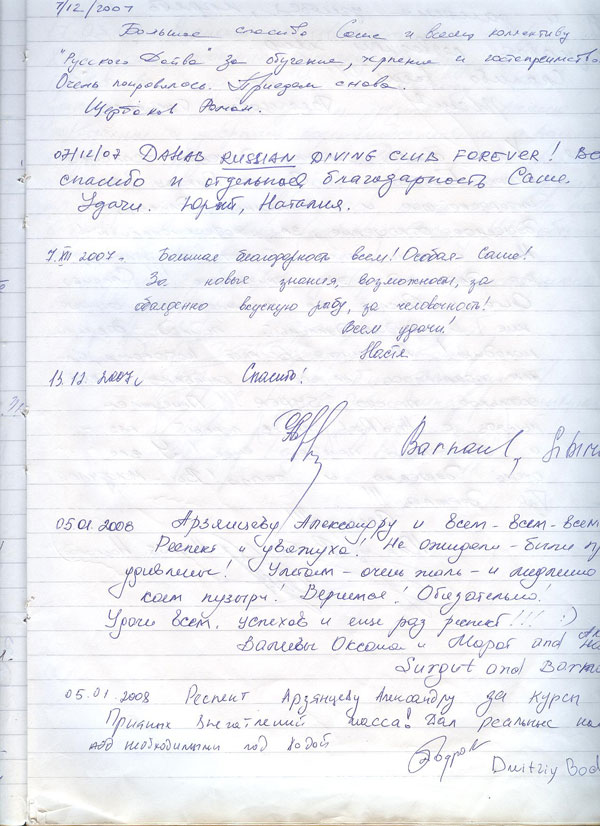 7/12/2007
Большое спасибо Саше и всему коллективу
"Русского Дайва" за обучение, терпение и гостеприимство
Очень понравилось. Приедем снова.
Щербаков Роман.
07/12/07 DAHAB RUSSIAN DIVING CLUB FOREVER!
спасибо и отдельное благодарность Саше.
Удачи. Юрий, Наталия.
7.XII 2007г. Большая благодарность всем! Особая - Саше!
За новые знания, возможности, за
обалденно вкусную рыбу, за человечность!
Всем удачи!
Настя
13.12.2007г. Спасибо!
Barnaul,
05.01.2008 Арзямцеву Александру и всем-всем-всем
Респект и уважуха! Не ожидали - были
удивлены! Улетаем - очень жаль - и медленно
пузыри! Вернемся! Обязательно!
Удачи всем, успехов и еще раз респект!!! :)
Валиевы Оксана и Марат and
Surgut and
05.01.2008 Респект Арзянцеву Александру да курсы
впечатлений масса! Дал реальные
необходимыми под водой
Dmitriy Bod